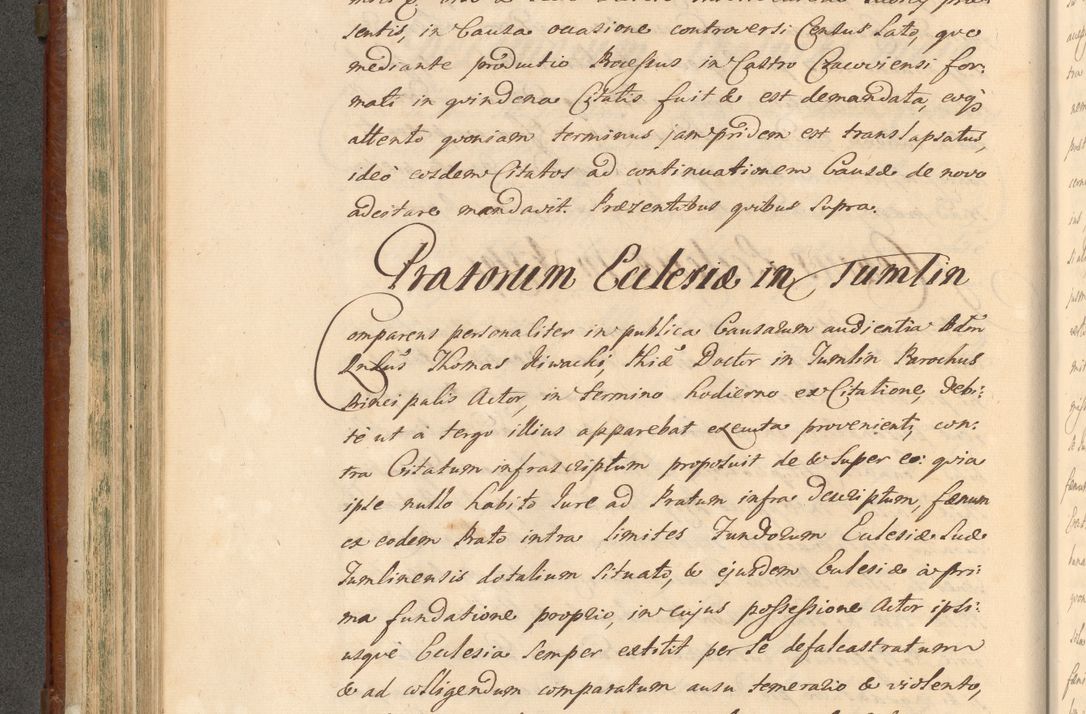 sentis, in Causa occasione controversi Census Lato, quo
mediante productio Processus in Castro Cracoviensi for:
mati in quindena Citatis fuit & est demandata, eoqꝫ
attento quoniam terminus jam pridem est translapsatus,
ideo eosdem Citatos ad continuationem Causæ de novo
adcitare mandavit. Præzentibus quibus supra.
Pratorum Ecclesiæ in Tumlin
Comparens personaliter in publica Causarum audientia Adm
Rndus Thomas Siwacki, Phiæ Doctor in Tumlin Parochus
Principalis Actor, in termino hodierno ex Citatione, debi:
te ut a tergo illius apparebat executa provenienti, con:
tra Citatum infrascriptum proposuit de & super eo: quia
ipse nullo habito Jure ad Pratum infra descriptum, fœnum
ex eodem Prato intra limites Fundorum Ecclesiæ Suæ
Tumlinensis dotalium situato, & ejusdem Ecclesiæ a pri:
ma fundatione proprio, in cujus possessione Actor ipsi:
usque Ecclesia semper extitit per se defalcastratum
& ad colligendum comparatum ausu temerario & violento,